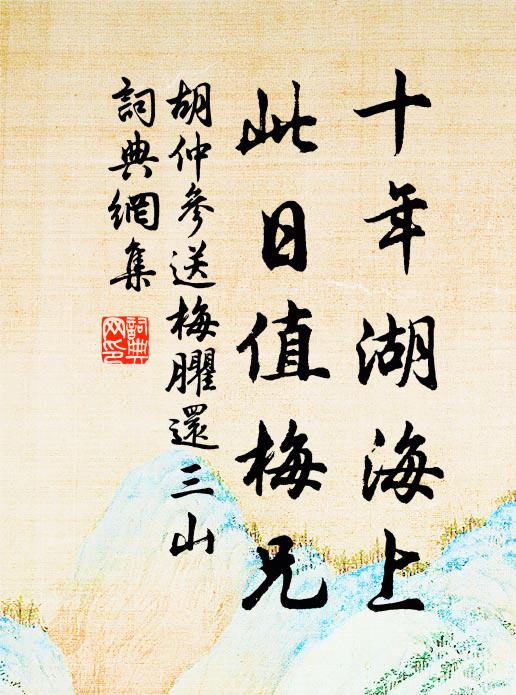 十年湖海上
此日值梅兄
胡仲參送梅臞還三山
詞典網集
詞典网印